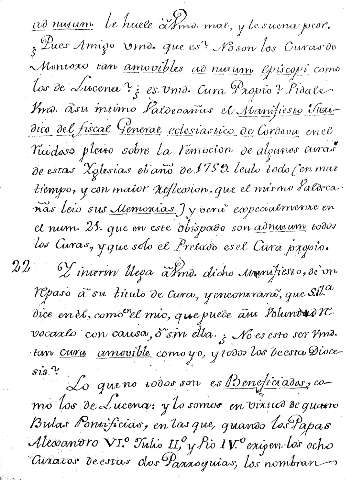 ad nutum le huele à Vmd. mal, y le suena peor.
¿Pues Amigo Vmd. que es? No son los Curas de
Montoro tan amovibles ad nutum episcopi como
los de Lucena? ¿es Vmd. Cura Propio? Pidale
Vmd. à su mismo Valdecañas el Manifiesto Juri-
dico del fiscal General eclesiastico de Cordova en el
ruidoso pleito sobre la remocion de algunos curas
de estas Yglesias el año de 1752. lealo todo (en mas
tiempo, y con maior reflexion, que el mismo Valdeca-
ñas leio sus Memorias) y verá especialmente en
el num. 21. que en este obispado son ad nutum todos
los Curas, y que solo el Prelado es el Cura propio.
22 Y interin llega à Vmd. dicho Manifiesto, dé un
repaso à su titulo de Cura, y encontrará, que S.Illa.
dice en èl, como en el mio, que puede à su Voluntad re-
vocarlo con causa, ò sin ella. ¿No es esto ser Vmd.
tan cura amovible como yo, y todos los de esta Dioce-
sis?
Lo que no todos son es Beneficiados, co-
mo los de Lucena: y lo somos en virtud de quatro
Bulas Pontificias, en las que, quando los Papas
Alexandro VI.º Julio II.º y Pio IV.º erigen los ocho
Curatos de estas dos Parroquias, los nombran